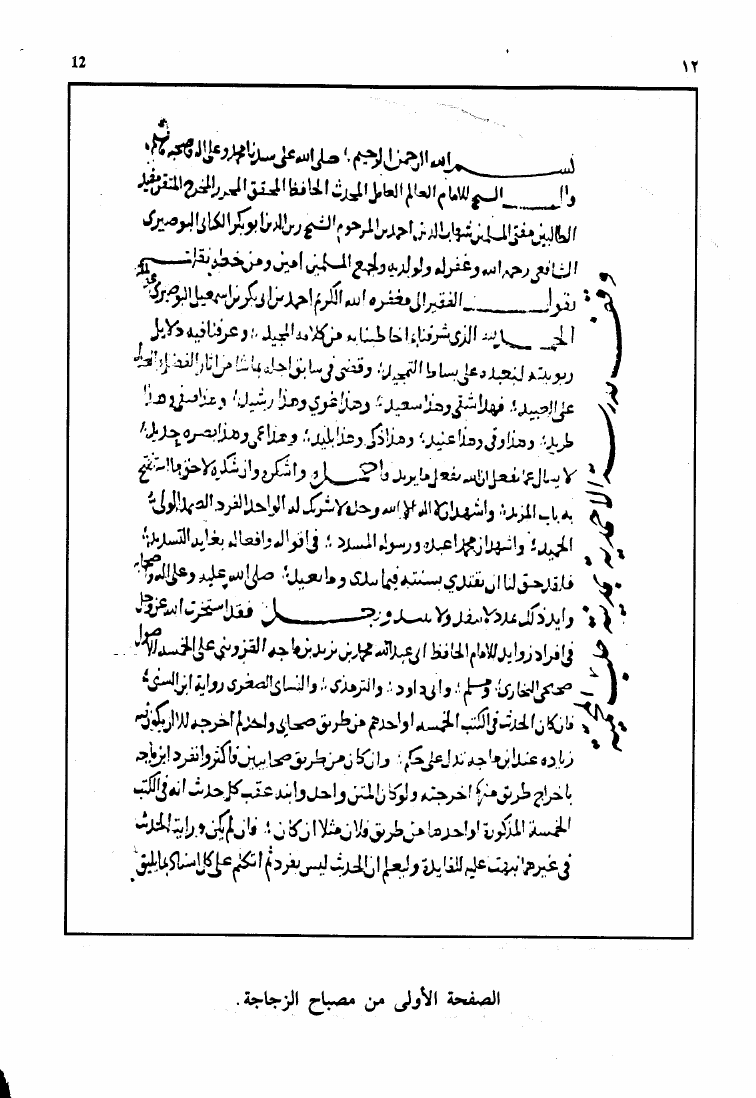 12
١٢
بسم الله الرحمن الرحيم صلى الله على سيدنا محمد وعلى اله وصحبه
قال الشيخ الامام العالم العامل المحدث الحافظ المحقق المحرر المخرج المتقن مفيد
الطالبين مفتى المسلمين شهاب الدين احمد بن المرحوم الشيخ زين الدين ابو بكر الكنانى البوصيرى
الشافعى رحمه الله وغفر له ولوالديه ولجميع المسلمين امين ومن خطه نقلت
يقول الفقير الى مغفرة الله الكريم احمد بن ابى بكر بن اسمعيل البوصيرى
الحمد لله الذى شرفنا خاطبنا به من كلامه المجيد وعرفنا فيه دلايل
ربوبيته لنعبده على بساط التمجيد وقضى فى سابق
على العبيد فهذا شقى وهذا سعيد وهذا غوى وهذا رشيد وهذا
طريد وهذا وهذا عنيد وهذا ذكى وهذا بليد وهذا عمى وهذا بصره حديد
لا يسال عما يفعل ان الله يفعل ما يريد واشكره وان شكره لا
به باب المزيد واشهد ان لا اله الا الله وحده لا شريك له الواحد الفرد الصمد الولى
الحميد واشهد ان محمدا عبده ورسوله المسدد فى اقواله وافعاله بغاية التسديد
فلقد حق لنا ان نقتدى بسنته فيما نبدى وما نعيد صلى الله عليه وعلى اله وصحابته
وايد ذلك عدد لا ينفد ولا يبيد وبعد فقد استخرت الله عز وجل
فى افراد زوايد الامام الحافظ ابى عبد الله محمد بن يزيد بن ماجه القزوينى على الخمسه الاصول
صحيحى البخارى ومسلم وابى داود والترمذى والنساى الصغرى رواية ابن السنى
فان كان الحديث فى الكتب الخمسه او احدهم من طريق صحابى واحد لم اخرجه الا ان يكون فيه
زياده عند ابن ماجه تدل على حكم وان كان من طريق صحابيين فاكثر وانفرد ابن ماجه
باخراج طريق منها اخرجته ولو كان المتن واحد وانبه عقب كل حديث انه فى الكتب
الخمسة المذكورة او احدها من طريق فلان مثلا ان كان فان لم يكن ورايت الحديث
فى غيرها نبهت عليه للفايدة وليعلم ان الحديث ليس بفرد ثم اتكلم على كل اسناد بما يليق
وقف مدرسة الاحمدية بمدينة حلب المحمية
الصفحة الأولى من مصباح الزجاجة .